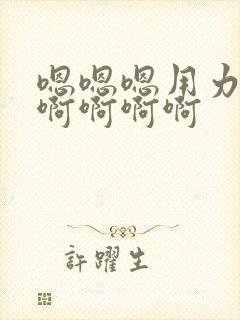 嗯嗯嗯用力
啊啊啊啊
許躍生